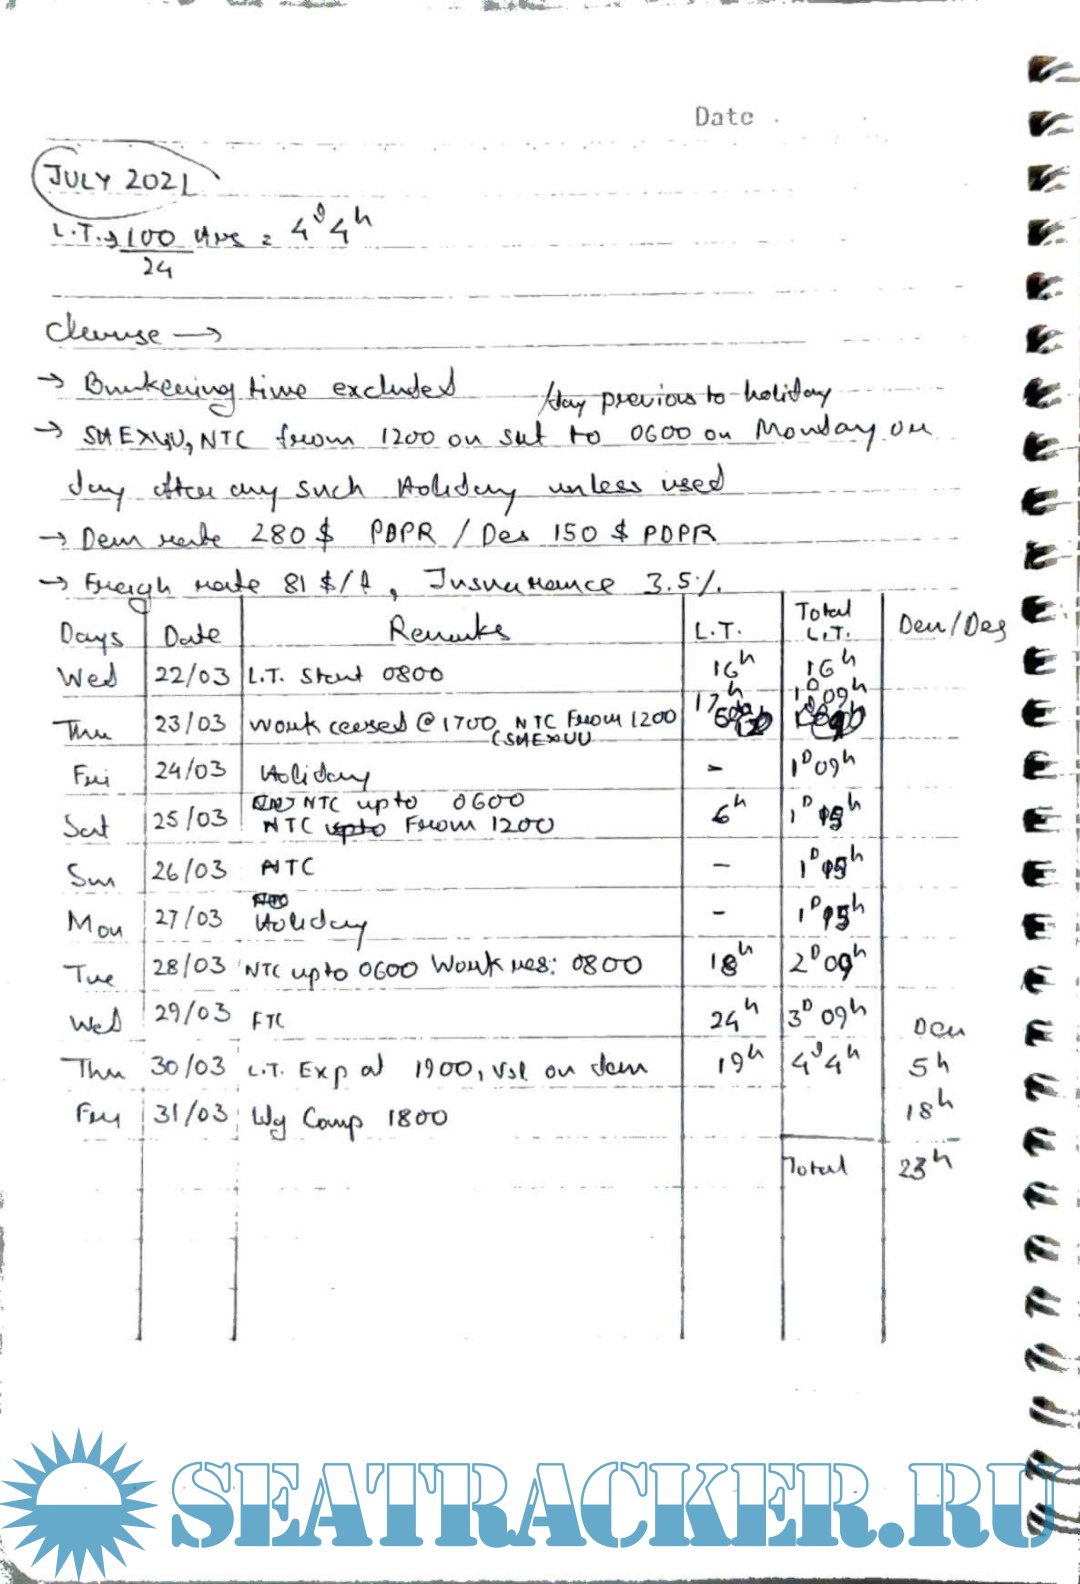 Date
JULY 2021
L.T. → 100 Hrs = 4D 4h
24
Clause →
→ Bunkering time excluded
/day previous to holiday
→ SHEXUU, NTC from 1200 on Sat to 0600 on Monday or
day after any such Holiday unless used
→ Dem rate 280 $ PDPR / Des 150 $ PDPR
→ Freigh rate 81 $/t, Insurance 3.5 %.
Days Date Remarks L.T. Total L.T. Dem/Des
Wed 22/03 L.T. Start 0800 16h 16h
Thu 23/03 Work ceased @ 1700, NTC From 1200 (SHEXUU 17h 1D 09h
Fri 24/03 Holiday - 1D 09h
Sat 25/03 NTC upto 0600
NTC upto From 1200 6h 1D 15h
Sun 26/03 NTC - 1D 15h
Mon 27/03 Holiday - 1D 15h
Tue 28/03 NTC upto 0600 Work res: 0800 18h 2D 09h
Wed 29/03 FTC 24h 3D 09h Dem
Thu 30/03 L.T. Exp at 1900, Vsl on dem 19h 4D 4h 5h
Fri 31/03 Wg Comp 1800 18h
Total 23h
SEATRACKER.RU